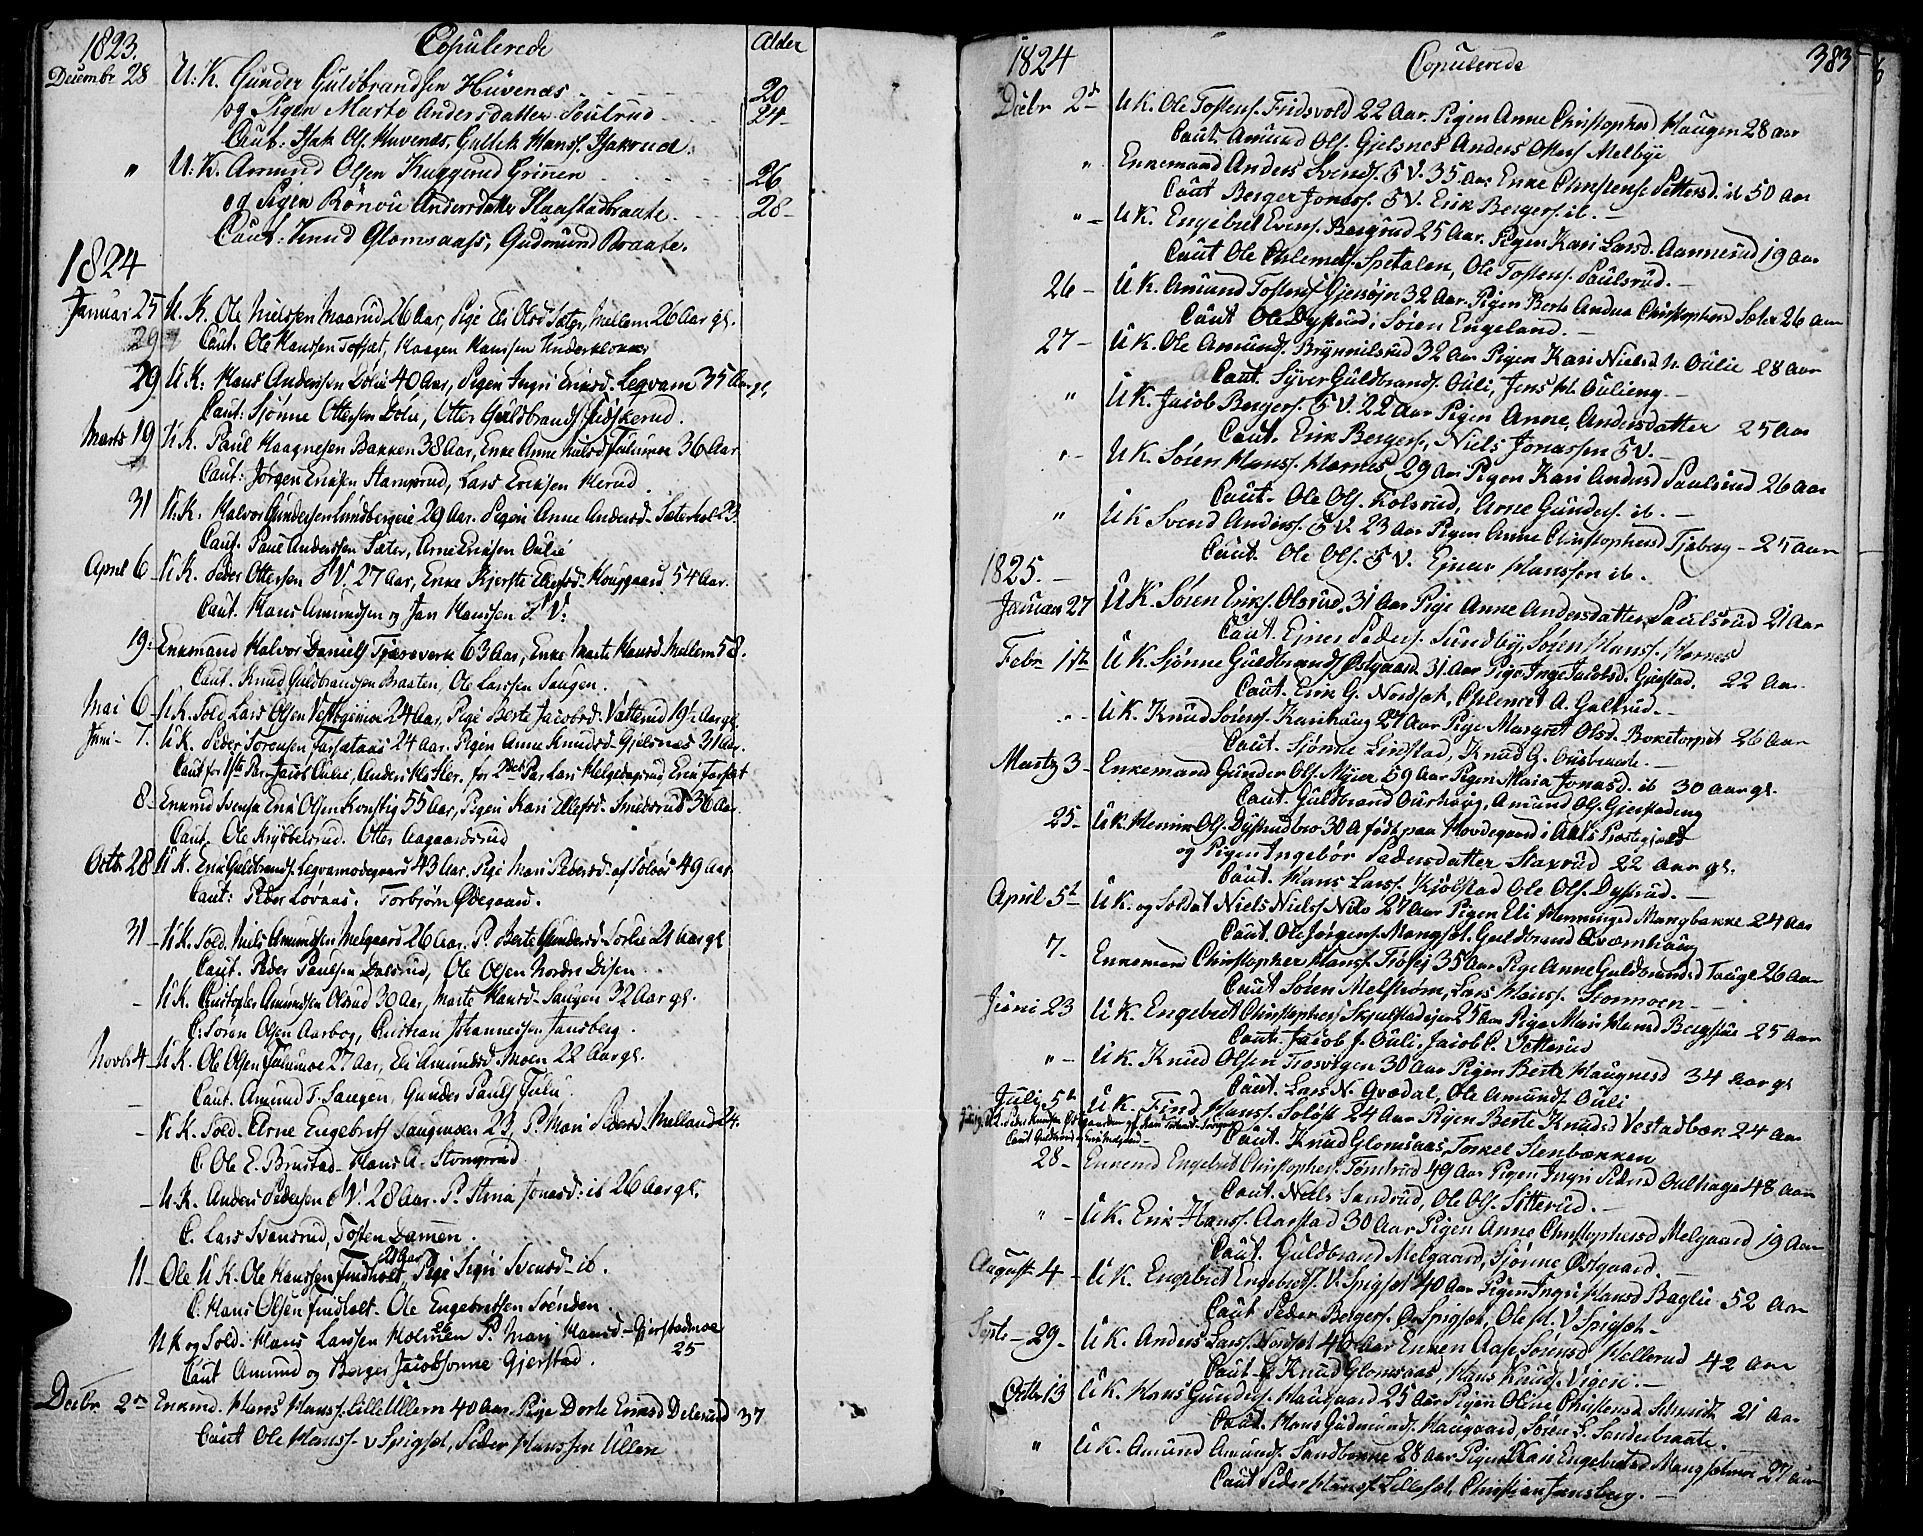 1823. Copulerede Alder
Decembr 28 U: K. Gunder Guldbrandsen Huvenes 20
og Pigen Marte Andersdatter Soulrud 24
Caut: Isak Ols. Huvenes, Gullik Hans. Isakrud.
" U: K. Amund Olsen Kuggerud Grinen 26
og Pigen Rönnü Andersdatter Haastadbraate 28
Caut: Knud Glomsaass, Gudmund Braate.
1824
Januar 25 U. K. Ole Nielssen Maarud 26 Aar, Pige Eli Olsd Sæter, Mellem 26 Aar gl.
Caut. Ole Hanssen Tofsæt, Haagen Hanssen
29 U K: Hans Anderssen Dölie 40 Aar, Pigen Ingri Ericsd. Legvam 35 Aar gl.
Caut: Sjönne Ottersen Dolie, Otter Guldbrands Fuskerud.
Marts 19 U K. Paul Haagnesen Bakken 38 Aar, Enke Anne Nielsd Julumoe 36 Aar
Caut: Jørgen Ericksen Harnsrud, Lars Ericksen Herud.
31 U. K. Halvor Gundersen Lundbergeie 29 Aar. Pigen Anne Andersd. Sæterhol 23.
Caut. Paul Anderssen Sæter, Arne Ericksen Oulie
April 6 U K. Peder Ottersen S V. 27 Aar, Enke Kjerste Ellefsd. Houggaard 54 Aar.
Caut. Hans Amundsen og Jan Hanssen S. V:
19. Enkemand Halvor Daniels Tjæreverk 63 Aar, Enke Marte Hansd Mellem 58.
Caut. Knud Guldbranssen Braaten, Ole Larssen Saugen.
Mai 6 U K. Sold. Lars Olsen Vestbyemoe 24 Aar, Pige Berte Jacobsd. Vætterud 19½ Aar gl.
Juni 7. U K. Peder Sörensen Farsætaas 24 Aar. Pigen Anne Knudsd. Gjelsnæs 31 Aar.
Caut for 1ste Par Jacob Oulie, Anders for 2det Par Lars Helgedagsrud Eric Farsæt
8 Enkmd Svensk Eric Olsen Konstig 55 Aar, Pigen Kari Ellefsd. Smedsrud 36 Aar
Caut. Ole Krybbelsrud. Otter Aagaardsrud
Octb. 28 U K. Eric Guldbrands. Legvamodegaard 43 Aar. Pige Mari Pedersd. af Solöer 49 Aar
Caut: Peder Lövaas. Torbjörn Ødegaard.
31 U K. Sold. Niels Amundsen Melgaard 26 Aar. P. Berte Gundersd. Sorlie 21 Aar gl
Caut. Peder Paulsen Dalsrud, Ole Olsen Nordre Disen
U K. Christopher Amundsen Olsrud 30 Aar, Marte Hansd. Saugen 32 Aar gl.
C: Soren Olsen Aarbog, Christian Johannessen Jansberg.
Novbr 4 U K. Ole Olsen Julumoe 27 Aar, Eli Amundsd. Moen 22 Aar gl.
Caut. Amund T. Saugen, Gunder Pauls Julu
U K. Sold. Arne Engebrets Saugmoen 23, P. Mari Pedersd. Melland 24.
C. Ole E. Brustad Hans A. Stomsrud
U. K. Anders Pedersen S V. 28 Aar. P. Stina Jonasd: ib 26 Aar gl.
C. Lars Svensrud, Tosten Damen.
11 Ole U K. Ole Hanssen Findholt, 21 Aar, Pige Sigri Svensd. ib.
C: Hans Olsen Findholt. Ole Engebretssen Söenden.
U K og Sold. Hans Larssen Holmen 26 P. Mari Hansd. Gjerstadmoe 25
Caut Amund og Berger Jacobsönne Gjerstad.
Decbr 2den Enkmd. Hans Hanss. Lille Ullern 40 Aar. Pige Dorte Ericksd Delerud 37
Caut Ole Hanss. v Spigset, Peder Hanssen Ullern
1824 Copulerede 383
Decbr 2d U K. Ole Tostens. Fridsvold 22 Aar. Pigen Anne Christophersd Haugen 28 aar
Caut. Amund Ols. Gjelsnes Anders Otters Melbye
" Enkemand Anders Svends. S V. 35 Aar Enke Christense Pettersd. ib 50 Aar
Caut Berger Jonass. S V. Erik Bergers. ib.
" U K. Engebret Evens. Bergrud 25 Aar. Pigen Kari Larsd. Aannerud 19 Aar
Caut Ole Ehlemets. Spetalen, Ole Tostens. Paulsrud.
26 U K. Amund Tostens Gjensöjn 32 Aar. Pigen Berte Andrea Christophersd Sæter 26 Aar
Caut Ole Dystrud, Sören Engeland.
27 U K. Ole Amunds. Brynnilsrud 32 Aar Pigen Kari Nielsd N. Oulie 28 aar
Caut. Syver Guldbrands. Ouli, Jens H. Oulieng.
" U K. Jacob Bergers. S V. 22 Aar Pigen Anne Andersdatter 25 Aar
Caut. Erik Bergers, Niels Jonassen S V.
" U K. Sören Hans. Harnes 29 Aar Pigen Kari Andersd Paulsrud 26 Aar
Caut. Ole Ols. Kolsrud, Arne Gunders. ib.
" U K Svend Anders. S V. 23 Aar Pigen Anne Christophersd Tjaberg 25 aar
Caut. Ole Ols. S V. Ejner Hanssen ib.
1825.
Januar 27 U K. Sören Eriks. Olsrud, 31 Aar Pige Anne Andersdatter Paulsrud 21 Aar
Caut. Ejner Peders. Sundby, Sören Hans. Harnes
Febr. 1st U K. Sjönne Guldbrands Østgaard 31 Aar Pige Inge Jacobsd. Gjerstad. 22 Aar
Caut. Erik G. Nordset, Ehlemet A. Galtrud.
" U K. Knud Sörens. Karihaug 27 Aar Pige Margret Olsd. Boketorpet 26 Aar
Caut. Sjönne Lindstad, Knud G. Ousbraate.
Marty 3 Enkemand Gunder Ols. Myrer 59 Aar Pigen Maria Jonasd. ib 30 aar gl.
Caut. Guldbrand Ourhaug, Amund Ols. Gjerstadeng
25 U K. Henrik Ols. Dystrudbro 30 A födt paa Hovdegaard i Aals Præstegjeld
og Pigen Ingebör Pedersdatter Staxrud 22 Aar gl.
Caut. Hans Larss. Kjölstad Ole Ols. Dystrud.
April 5t U K. og Soldat Niels Niels. Nilo 27 Aar Pigen Eli Henningsd Mangbakke 24 Aar
Caut. Ole Jörgens. Mangset. Guldbrand Qværnhaug
7 Enkemand Christopher Hans. Tröftj 35 Aar Pige Anne Guldbrandsd Tauge 26 Aar
Caut Sören Melström, Lars Hans. Stormoen
Juni 23 U K. Engebret Christophers Skjulstadejer 25 Aar Pige Mari Hansd Bergstue 25 Aar
Caut. Jacob J. Ouli, Jacob P. Vetterud
" U K. Knud Olsen Trosvigen 30 Aar Pigen Berte Haugnesd 34 Aar gl
Caut. Lars N. Qvædal, Ole Amunds. Ouli
Julj 5t U K. Find Hans. Solost 24 Aar Pigen Berte Knudsd Vestadbæk 24 Aar
Caut. Knud Glomsaas, Torkel Stenbækken
28 Enkemd Engebret Christophers. Tomtrud 49 Aar Pigen Ingri Pedersd Oulhage 48 Aar
Caut. Niels Sandrud, Ole Ols. Sitterud.
" U K. Erik Hans. Aarstad 30 Aar Pigen Anne Christophersd Melgaard 19 Aar
Caut. Guldbrand Melgaard, Sjönne Østgaard.
August 4 U K. Engebret Engebrets. V. Spigset 40 Aar Pigen Ingri Hansd Baglie 52 Aar
Caut Peder Bergers. Ø. Spigset, Ole H. V Spigset
Septr 29 U K. Anders Lars. Nordset 40 Aar Enken Aase Sörensd Hellerud 42 Aar
Caut. Knud Glomsaas, Hans Knuds. Vigen.
Octbr 13 U K. Hans Gunders. Haugaard 25 Aar Pigen Oline Christensd Schmidt 21 Aar
Caut. Hans Gudmunds. Haugaard, Sören S. Sanderbraate.
" U K. Amund Amunds. Sandbönne 28 Aar Pigen Kari Engebretsd Mangsetmoe 27 Aar
Caut Peder Hans. Lilleset, Christian Jansberg.